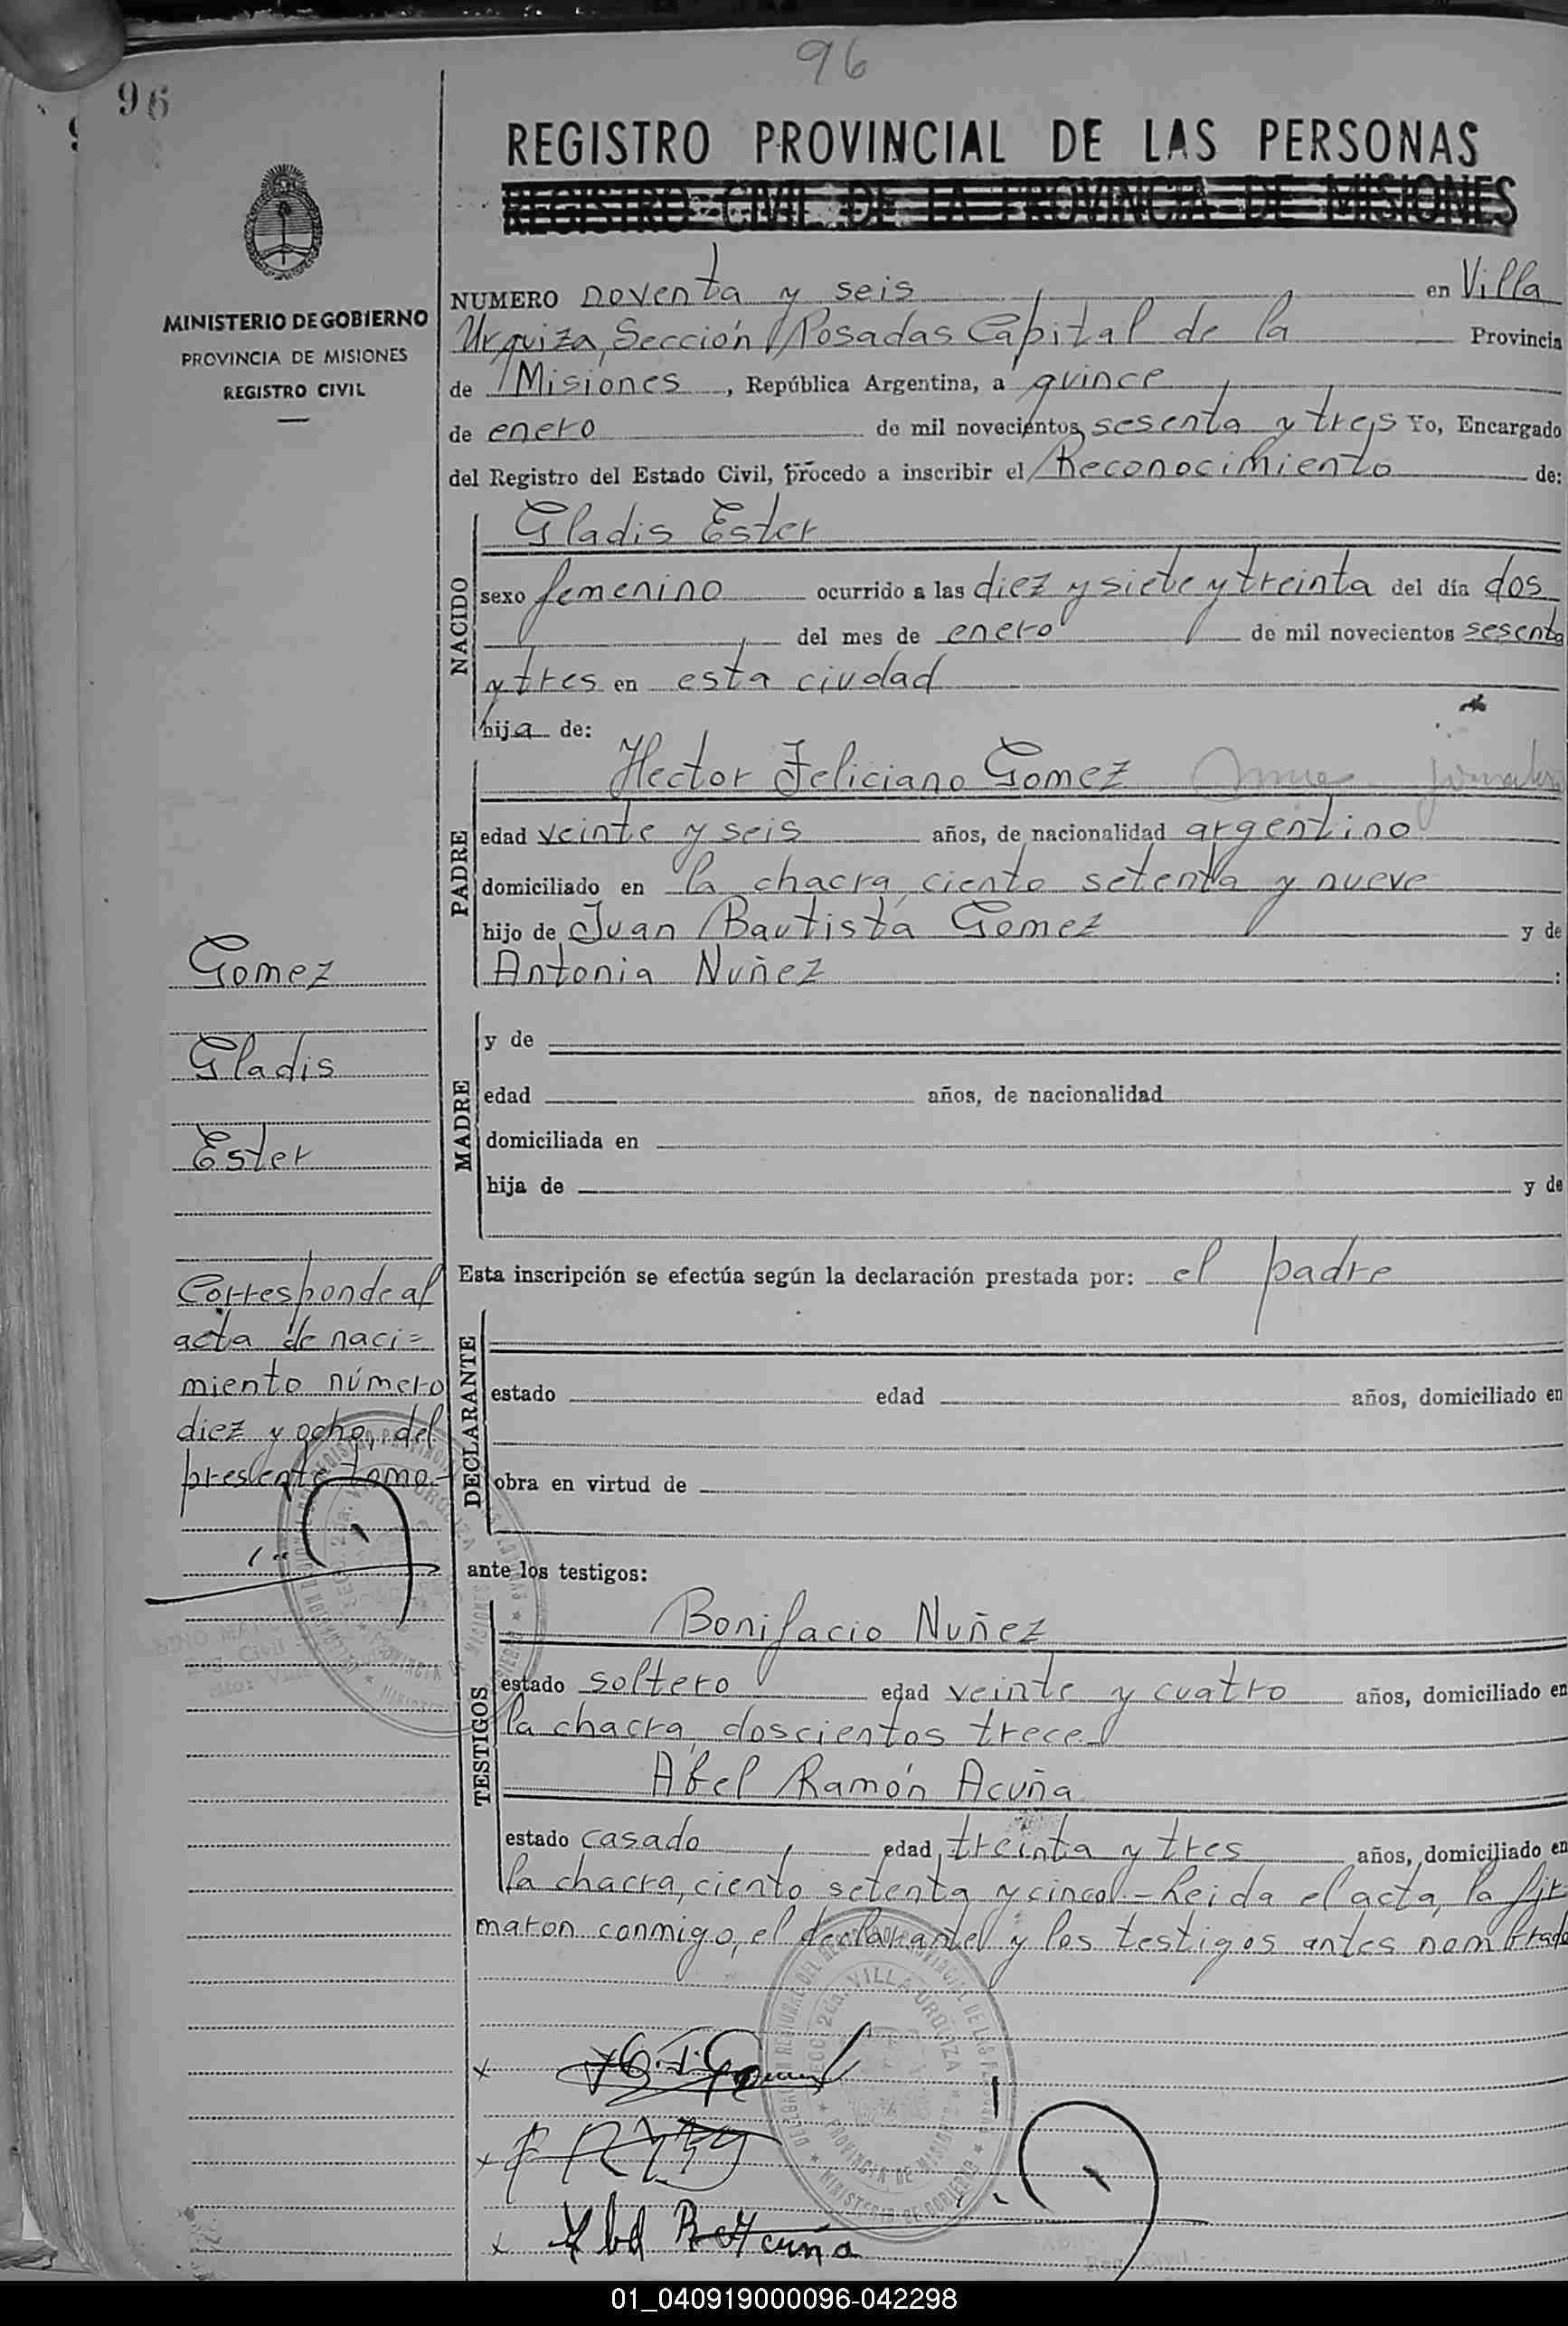 96
96
REGISTRO PROVINCIAL DE LAS PERSONAS
REGISTRO CIVIL DE LA PROVINCIA DE MISIONES
MINISTERIO DE GOBIERNO
PROVINCIA DE MISIONES
REGISTRO CIVIL
NUMERO noventa y seis en Villa
Urquiza, Sección Posadas Capital de la Provincia
de Misiones, República Argentina, a quince
de enero de mil novecientos sesenta y tres Yo, Encargado
del Registro del Estado Civil, procedo a inscribir el Reconocimiento de:
NACIDO
Gladis Ester
sexo femenino ocurrido a las diez y siete y treinta del día dos
del mes de enero de mil novecientos sesenta
y tres en esta ciudad
hija de:
PADRE
Hector Feliciano Gomez
edad veinte y seis años, de nacionalidad argentino
domiciliado en la chacra ciento setenta y nueve
hijo de Juan Bautista Gomez y de
Antonia Nuñez :
MADRE
y de
edad años, de nacionalidad
domiciliada en
hija de y de
Esta inscripción se efectúa según la declaración prestada por: el padre
DECLARANTE
estado edad años, domiciliado en
obra en virtud de
ante los testigos:
TESTIGOS
Bonifacio Nuñez
estado soltero edad veinte y cuatro años, domiciliado en
la chacra, doscientos trece
Abel Ramón Acuña
estado casado edad treinta y tres años, domiciliado en
la chacra, ciento setenta y cinco.- Leida el acta, la fir
maron conmigo, el declarante y los testigos antes nombrado
Gomez
Gladis
Ester
Corresponde al
acta de naci=
miento número
diez y ocho, del
presente tomo.-
SECC. 2da. VILLA URQUIZA
PROVINCIA DE MISIONES
MINISTERIO DE GOBIERNO
x
x
x Abel R Acuña
01_040919000096-042298